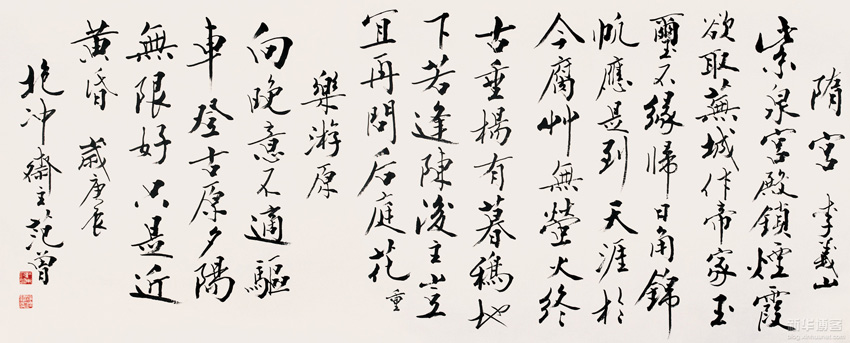 隋宮 李義山
紫泉宮殿鎖煙霞
欲取蕪城作帝家玉
璽不緣歸日角錦
帆應是到天涯於
今腐艸無螢火終
古垂楊有暮鴉地
下若逢陳後主豈
宜再問后庭花 重
樂游原
向晚意不適驅
車登古原夕陽
無限好只是近
黃昏 歲庚辰
抱冲齋主范曾
新华博客